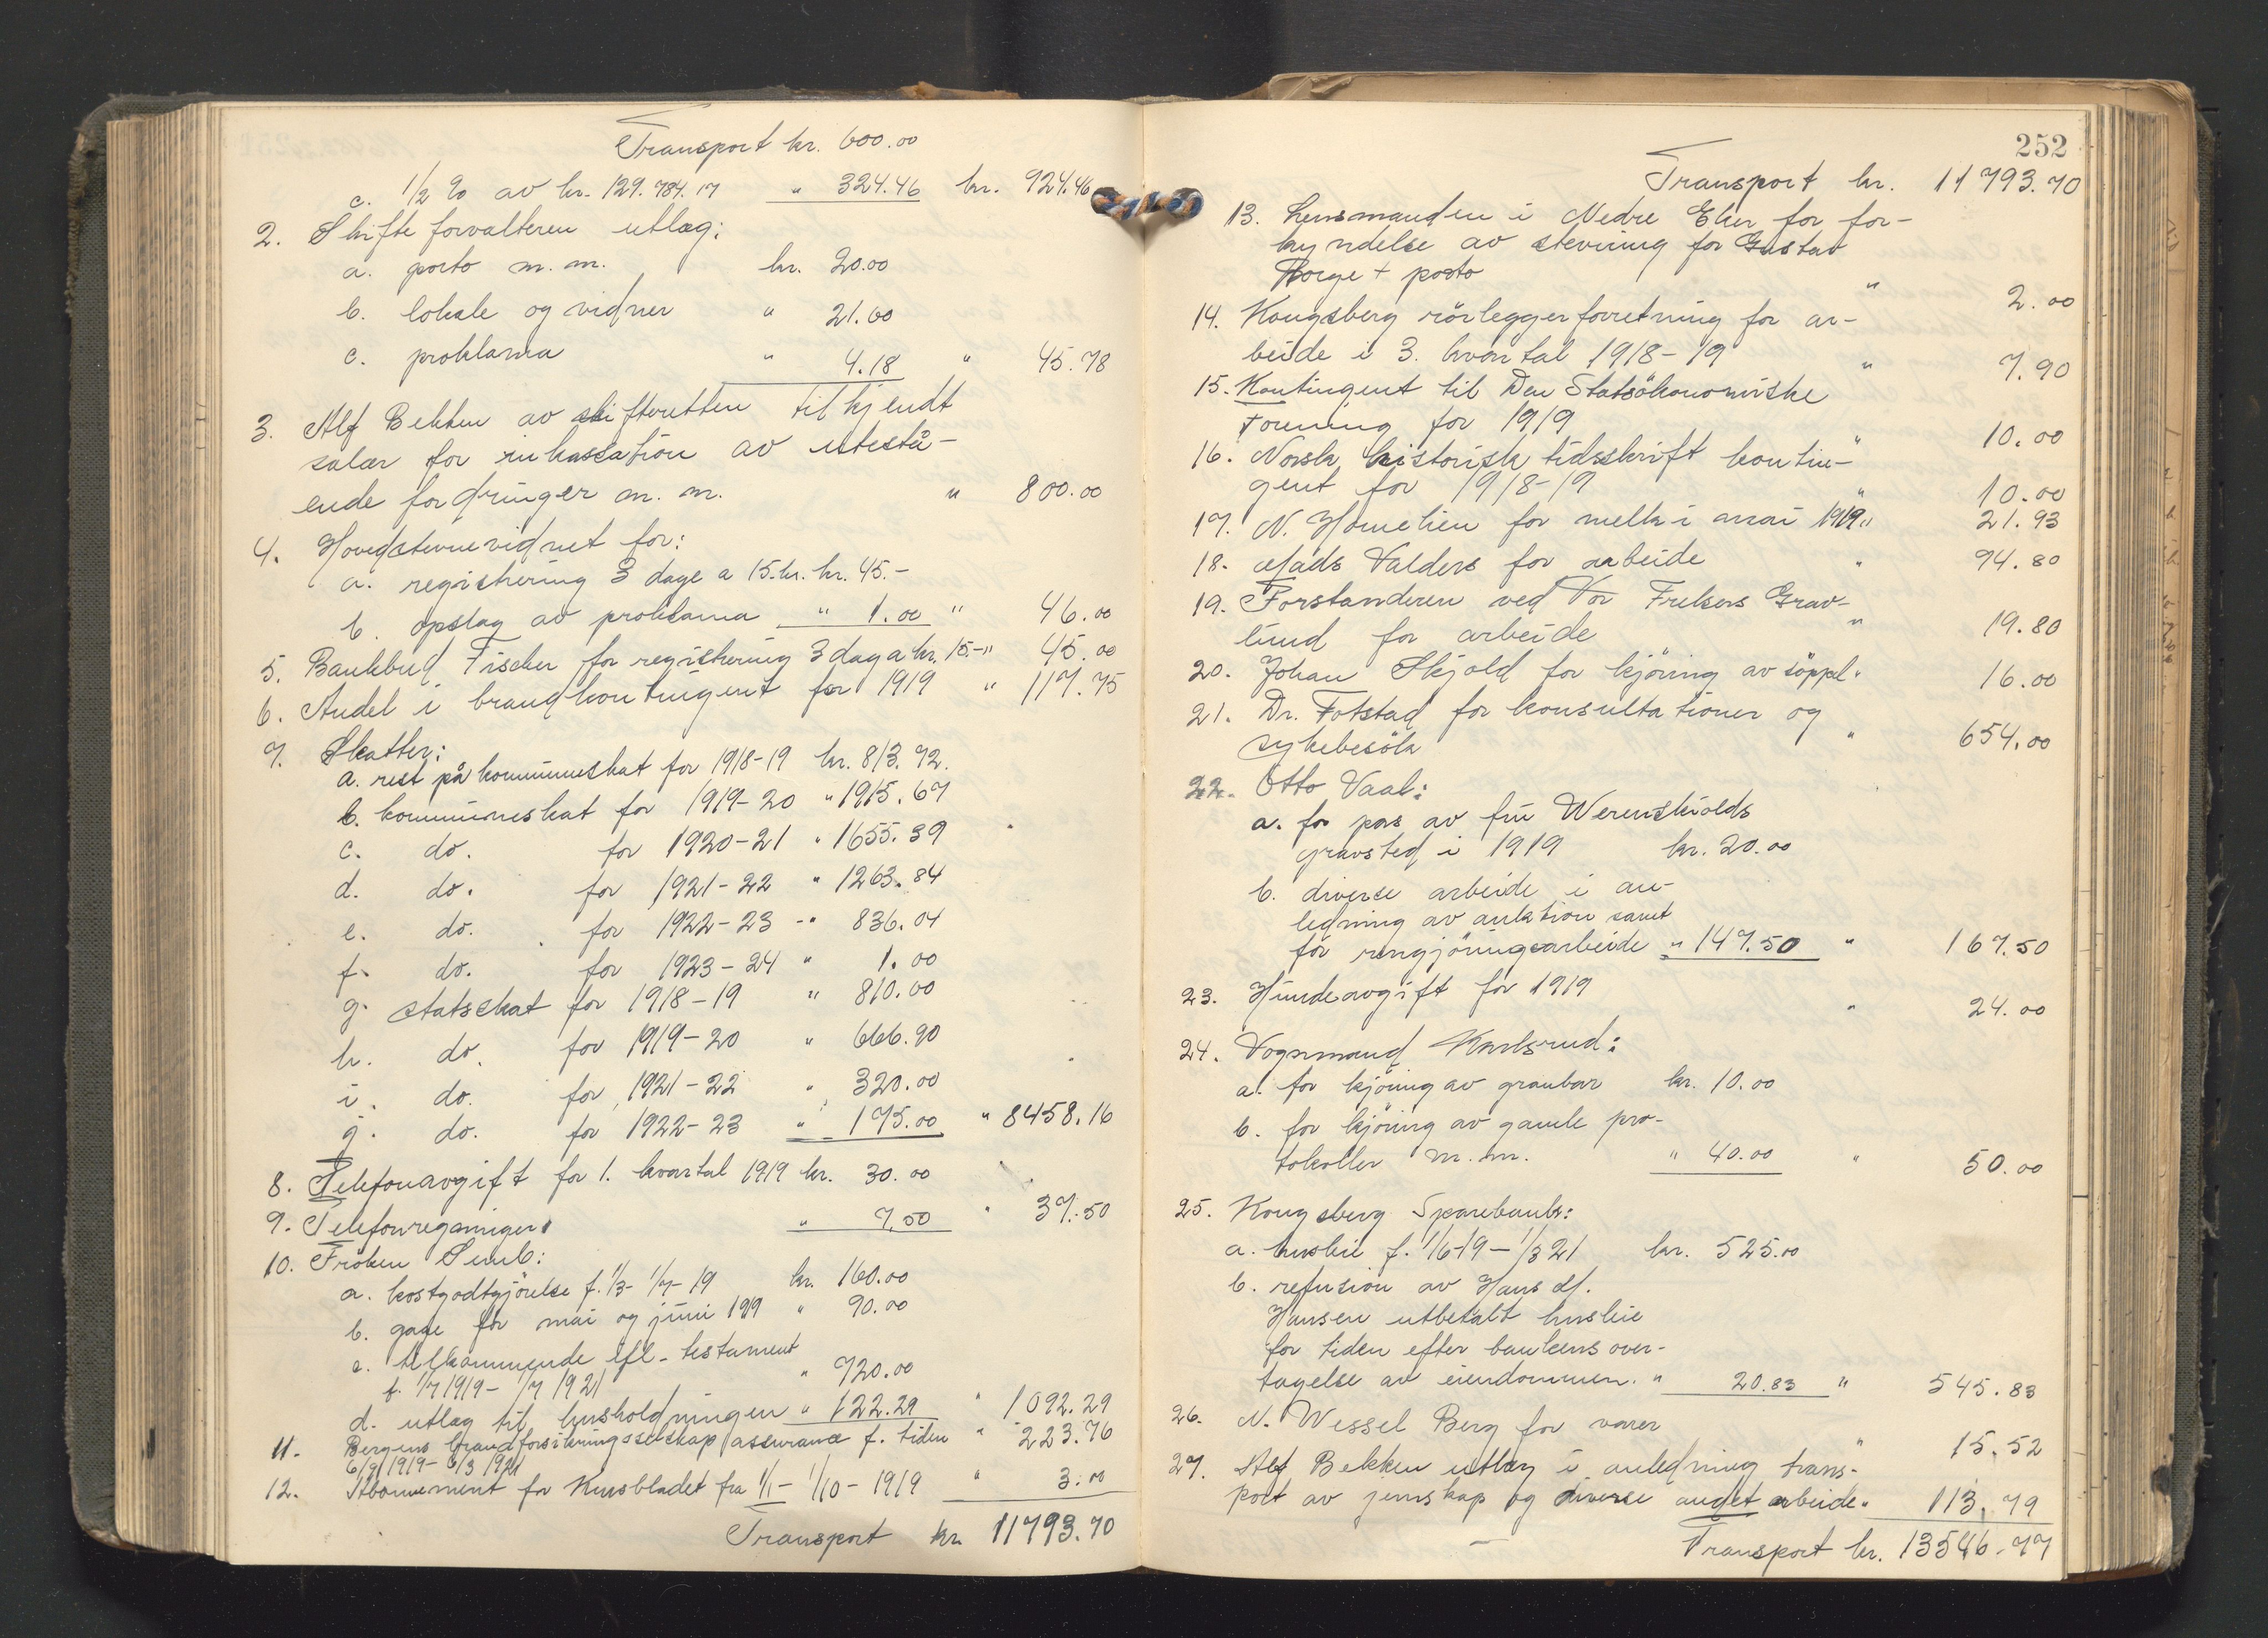 Transport kr. 600.00
c. 1/2 % av kr. 129.784.17 " 324.46 kr. 924.46
2. Skifteforvalteren utlæg:
a. porto m. m. kr. 20.00
b. lokale og vidner " 21.60
c. proklama " 4.18 " 45.78
3. Alf Bekken av skifteretten tilkjendt
salær for inkassation av utestå-
ende fordringer m. m. " 800.00
4. Hovedstevnevidnet for:
a. registrering 3 dage a 15.kr. kr. 45.-
b. opslag av proklama " 1.00 " 46.00
5. Bankbud Fischer for registrering 3 dag a kr. 15.- " 45.00
6. Andel i brandkontingent for 1919 " 117.75
7. Skatter:
a. rest på kommuneskat for 1918-19 kr. 813.72.
b. kommuneskat for 1919-20 " 1915.67
c. do. for 1920-21 " 1655.39
d. do. for 1921-22 " 1263.84
e. do. for 1922-23 " 836.04
f. do. for 1923-24 " 1.00
g. statsskat for 1918-19 " 810.00
h. do. for 1919-20 " 666.90
i. do. for 1921-22 " 320.00
j. do. for 1922-23 " 175.00 " 8458.16
8. Telefonavgift for 1. kvartal 1919 kr. 30.00
9. Telefonregninger " 7,50 " 37.50
10. Frøken Semb:
a. kostgodtgjörelse f. 1/3- 1/7-19 kr. 160.00
b. gage for mai og juni 1919 " 90.00
c. tilkommende efl. testament
f. 1/7 1919- 1/7 1921 " 720.00
d. utlæg til husholdningen " 122.29 " 1092.29
11. Bergens brandforsikringsselskap assurance f. tiden " 223.76
6/9 1919- 6/3 1921
12. Abonnement for Kursbladet fra 1/1- 1/10-1919 " 3.00
Transport kr. 11793.70
252
Transport kr. 11793.70
13. Lensmanden i Nedre Eker for for-
kyndelse av stevning for Gustav
Borge + porto " 2.00
14. Kongsberg rörleggerforretning for ar-
beide i 3. kvartal 1918-19 " 7.90
15. Kontingent til Den Statsökonomiske
Forening for 1919 " 10.00
16. Norsk historisk tidsskrift kontin-
gent for 1918-19 " 10.00
17. N. Homelien for melk i mai 1919 " 21.93
18. Mads Valders for arbeide " 94.80
19. Forstanderen ved Vor Frelsers Grav-
lund for arbeide " 19.80
20. Johan Skjold for kjöring av söppel " 16.00
21. Dr. Fotstad for konsultationer og
sykebesök " 654.00
22. Otto Vaal:
a. for pas av fru Werenskiolds
gravsted i 1919 kr. 20.00
b. diverse arbeide i an-
ledning av auktion samt
for rengjöringsarbeide " 147.50 " 167.50
23. Hundeavgift for 1919 " 24.00
24. Vognmand Karlsrud:
a. for kjöring av granbar kr. 10.00
b. for kjöring av gamle pro-
tokoller m.m. " 40.00 " 50.00
25. Kongsberg Sparebank:
a. husleie f. 1/6-19 - 1/3 21 kr. 525.00
b. refusion av Hans M.
Hansen utbetalt husleie
for tiden efter bankens over-
tagelse av eiendommen. " 20.83 " 545.83
26. N. Wessel Berg for varer " 15.52
27. Alf Bekken utlæg i anledning trans-
port av jernskap og diverse andet arbeide " 113.79
Transport kr. 13546.77